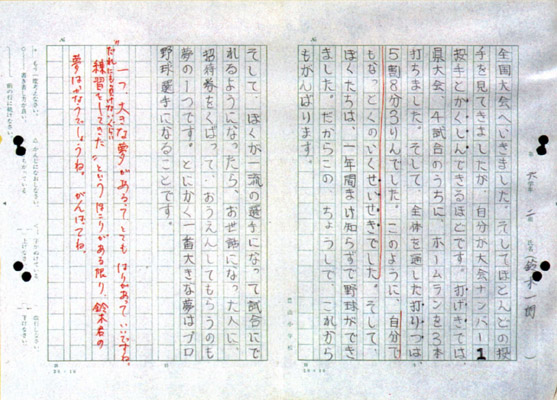 六年 二組 氏名(鈴木一朗)
全国大会へいきました。そしてほとんどの投
手を見てきましたが、自分が大会ナンバー1
投手とかくしんできるほどです。打げきでは、
県大会 4試合のうちに、ホームランを3本
打ちました。そして、全体を通した打りつは、
5割8分3りんでした。このように、自分で
もなっとくのいくせいせきでした。そして、
ぼくたちは、一年間まけ知らずで野球ができ
ました。だからこの ちょうしで、これから
もがんばります。
豊山小学校
20×10
そして、ぼくが一流の選手になって試合にで
れるようになったら、お世話になった人に、
招待券をくばって、おうえんしてもらうのも
夢の1つです。とにかく一番大きな夢はプロ
野球選手になることです。
一つ、大きな夢があるって とても はりがあっていいですね。
“だれにもまけないくらい
練習をしてきた”というほこりがある限り、鈴木君の
夢はかなうでしょうね。 がんばってね。
20×10